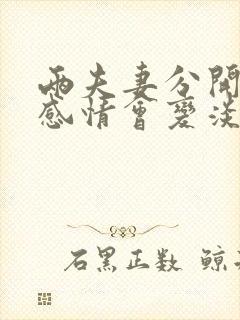 两夫妻分開
感情會變淡
石黑正数 鲸